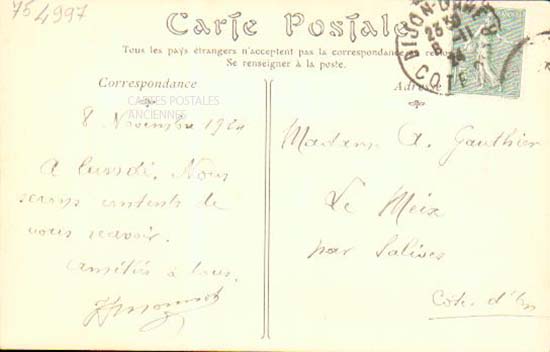 75 4997
Carte Postale
Tous les pays étrangers n'acceptent pas la correspondance au
Se renseigner à la poste.
Correspondance
CARTES POSTALES
ANCIENNES
8 Novembre 1924
A lundi. Nous
serons contents de
vous revoir.
Amitiés à tous.
Adresse
Madame A. Gauthier
Le Meix
par Salives
Côte d'Or
DIJON
23 30
8 -11
24
COTE D'OR